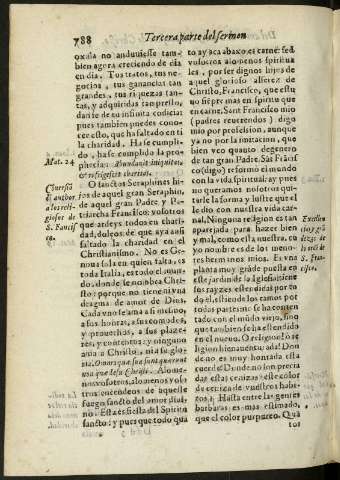 788 Tercera parte del sermon
oxala no anduuiesse tam-
bien agora creciendo de dia
en dia. Tus tratos, tus ne-
gocios, tus ganancias tan
grandes, tus riquezas tan-
tas, y adquiridas tan presto,
dan fe de tu infinita codicia:
pues tambien puedes cono-
cer esto, que ha faltado en ti
la charidad. Ha se cumpli-
do, hase cumplido la pro-
Mat. 24 phecia: Abundauit iniquitas,
& refrigescet charitas.
O sanctos Seraphines hi-
jos de aquel gran Seraphin,
de aquel gran Padre, y Pa-
triarcha Francisco: vosotros
que ardeys todos en chari-
dad, doleos: de que aya assi
faltado la charidad en el
Christianismo. No es Ge-
noua sola en quien falta, es
toda Italia, es todo el mun-
do, donde se nombra Chri-
sto: porque mo tiene ni vna
dragma de amor de Dios.
Cada vno se ama a si mismo,
a sus honras, a sus comodos,
y prouechos, a sus plaze-
res, y contentos: y ninguno
ama a Christo, ni a su glo-
ria.
Alome-
nos vosotros, alomenos voso-
tros encendeos de aqueste
fuego sancto del amor diui-
no. Esta es fiesta del Spiritu
sancto: y pues que todo qua
Conuersió
el author
a los reli-
giosos de
S. Francis
co.
to ay aca abaxo es carne: sed
vosotros alomenos spiritua
les, por ser dignos hijos de
aquel glorioso alferez de
Christo, Francisco, que estu
uo siempre mas en spiritu que
en carne. Sant Francisco mio
(padres reuerendos) digo
mio por profession, aunque
ya no por la imitacion, que
bien veo quanto degenero
de tan gran Padre. Sāt Frācis
co (digo) reformo el mundo
con la vida spiritual: ay pues
no queramos nosotros qui-
tarle la forma y lustre que el
le dio con nuestra vida car-
nal. Ninguna religion es tan
aparejada para hazer bien
y mal, como esta nuestra, cu
yo nombre es de los meno-
res hermanos mios. Es vna
planta muy grāde puesta en
este jardin de la Iglesia: assi
sus rayzes estendidas por to
do el, estiende los ramos por
todas partes: no se ha conten
tado con el mūdo viejo, sino
que tambien se ha estendido
en el nueuo. O religion! o re
ligion bienauenturada! Don
de no es muy honrada esta
cuerda? Donde no son precia
das estas cenizas: este color
de ceniza de vuestros habi-
tos? Hasta entre la gente
barbara es mas estimado,
que el color purpureo. Quā
tos
Excelēn
cias y grā
dezas de
S. Fran-
cisco.